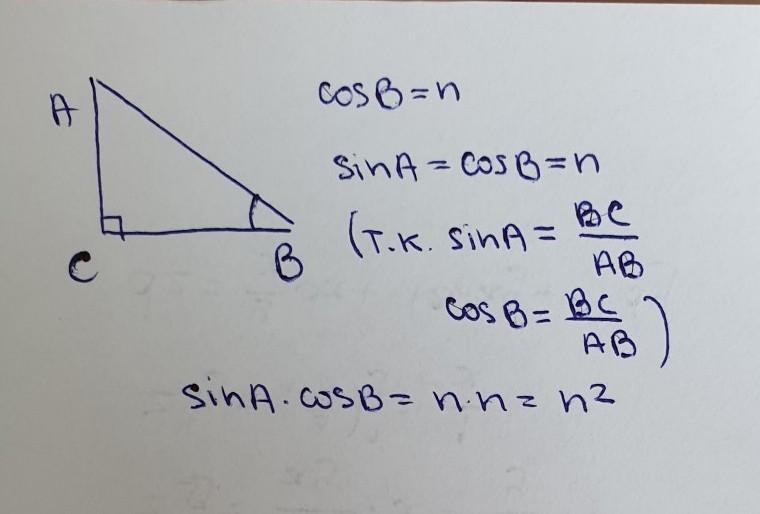 A
C
B
cosB=n
sinA=cosB=n
(т.к. sinA= BC/AB
cosB= BC/AB)
sinA·cosB= n·n= n²